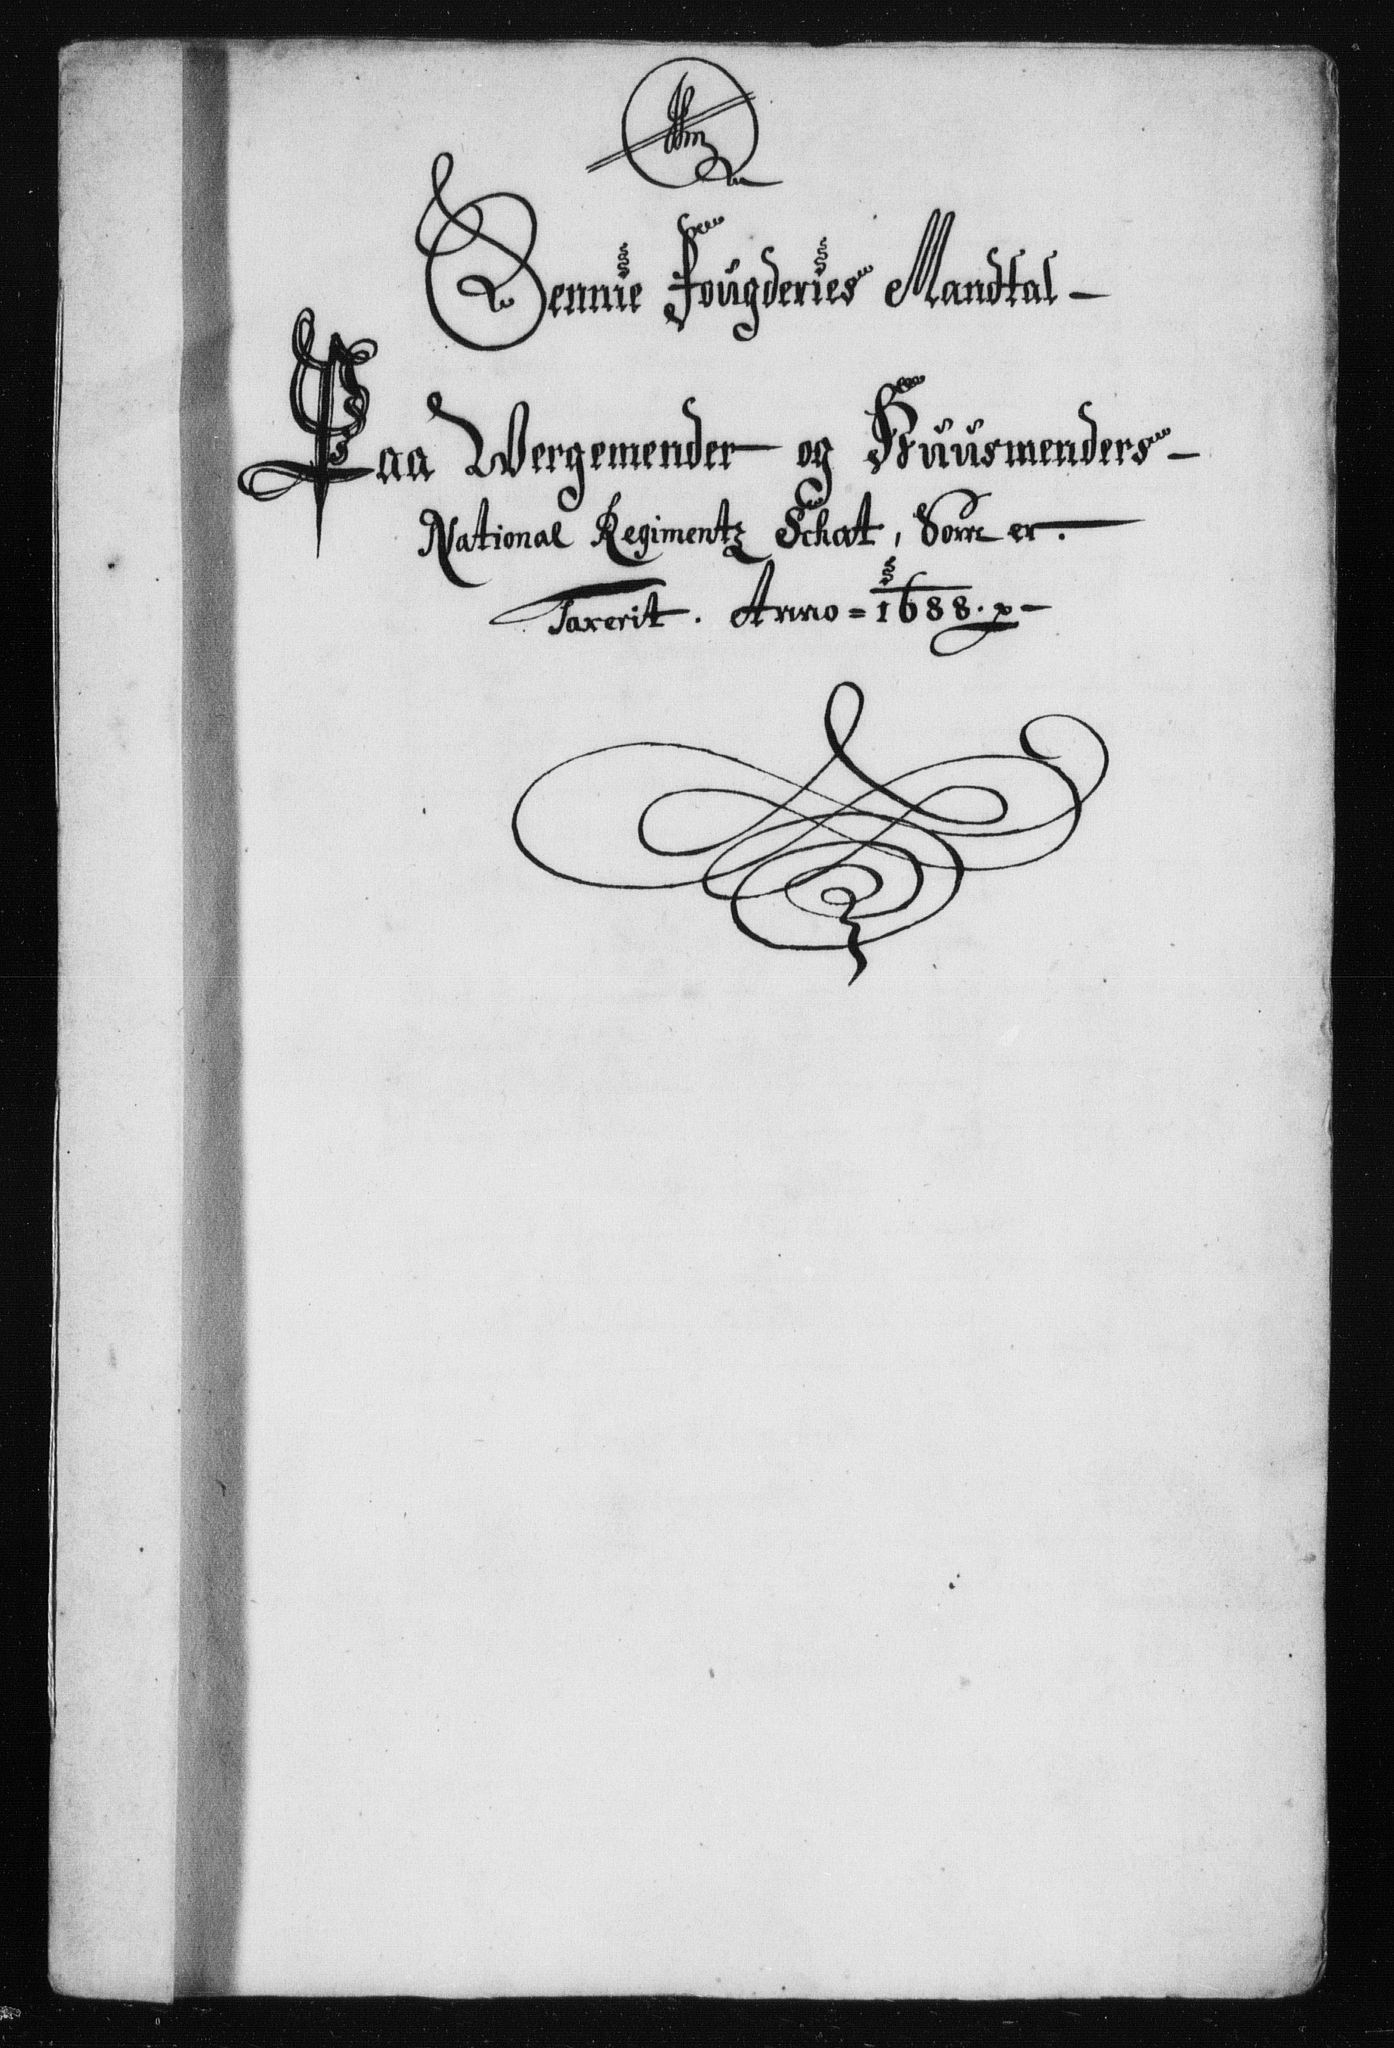 Sennie Fougderies Mandtal -
Paa Wergemender og Huusmenders -
National Regimentz Schat, Som er.
Taxerit. Anno = 1688. p -